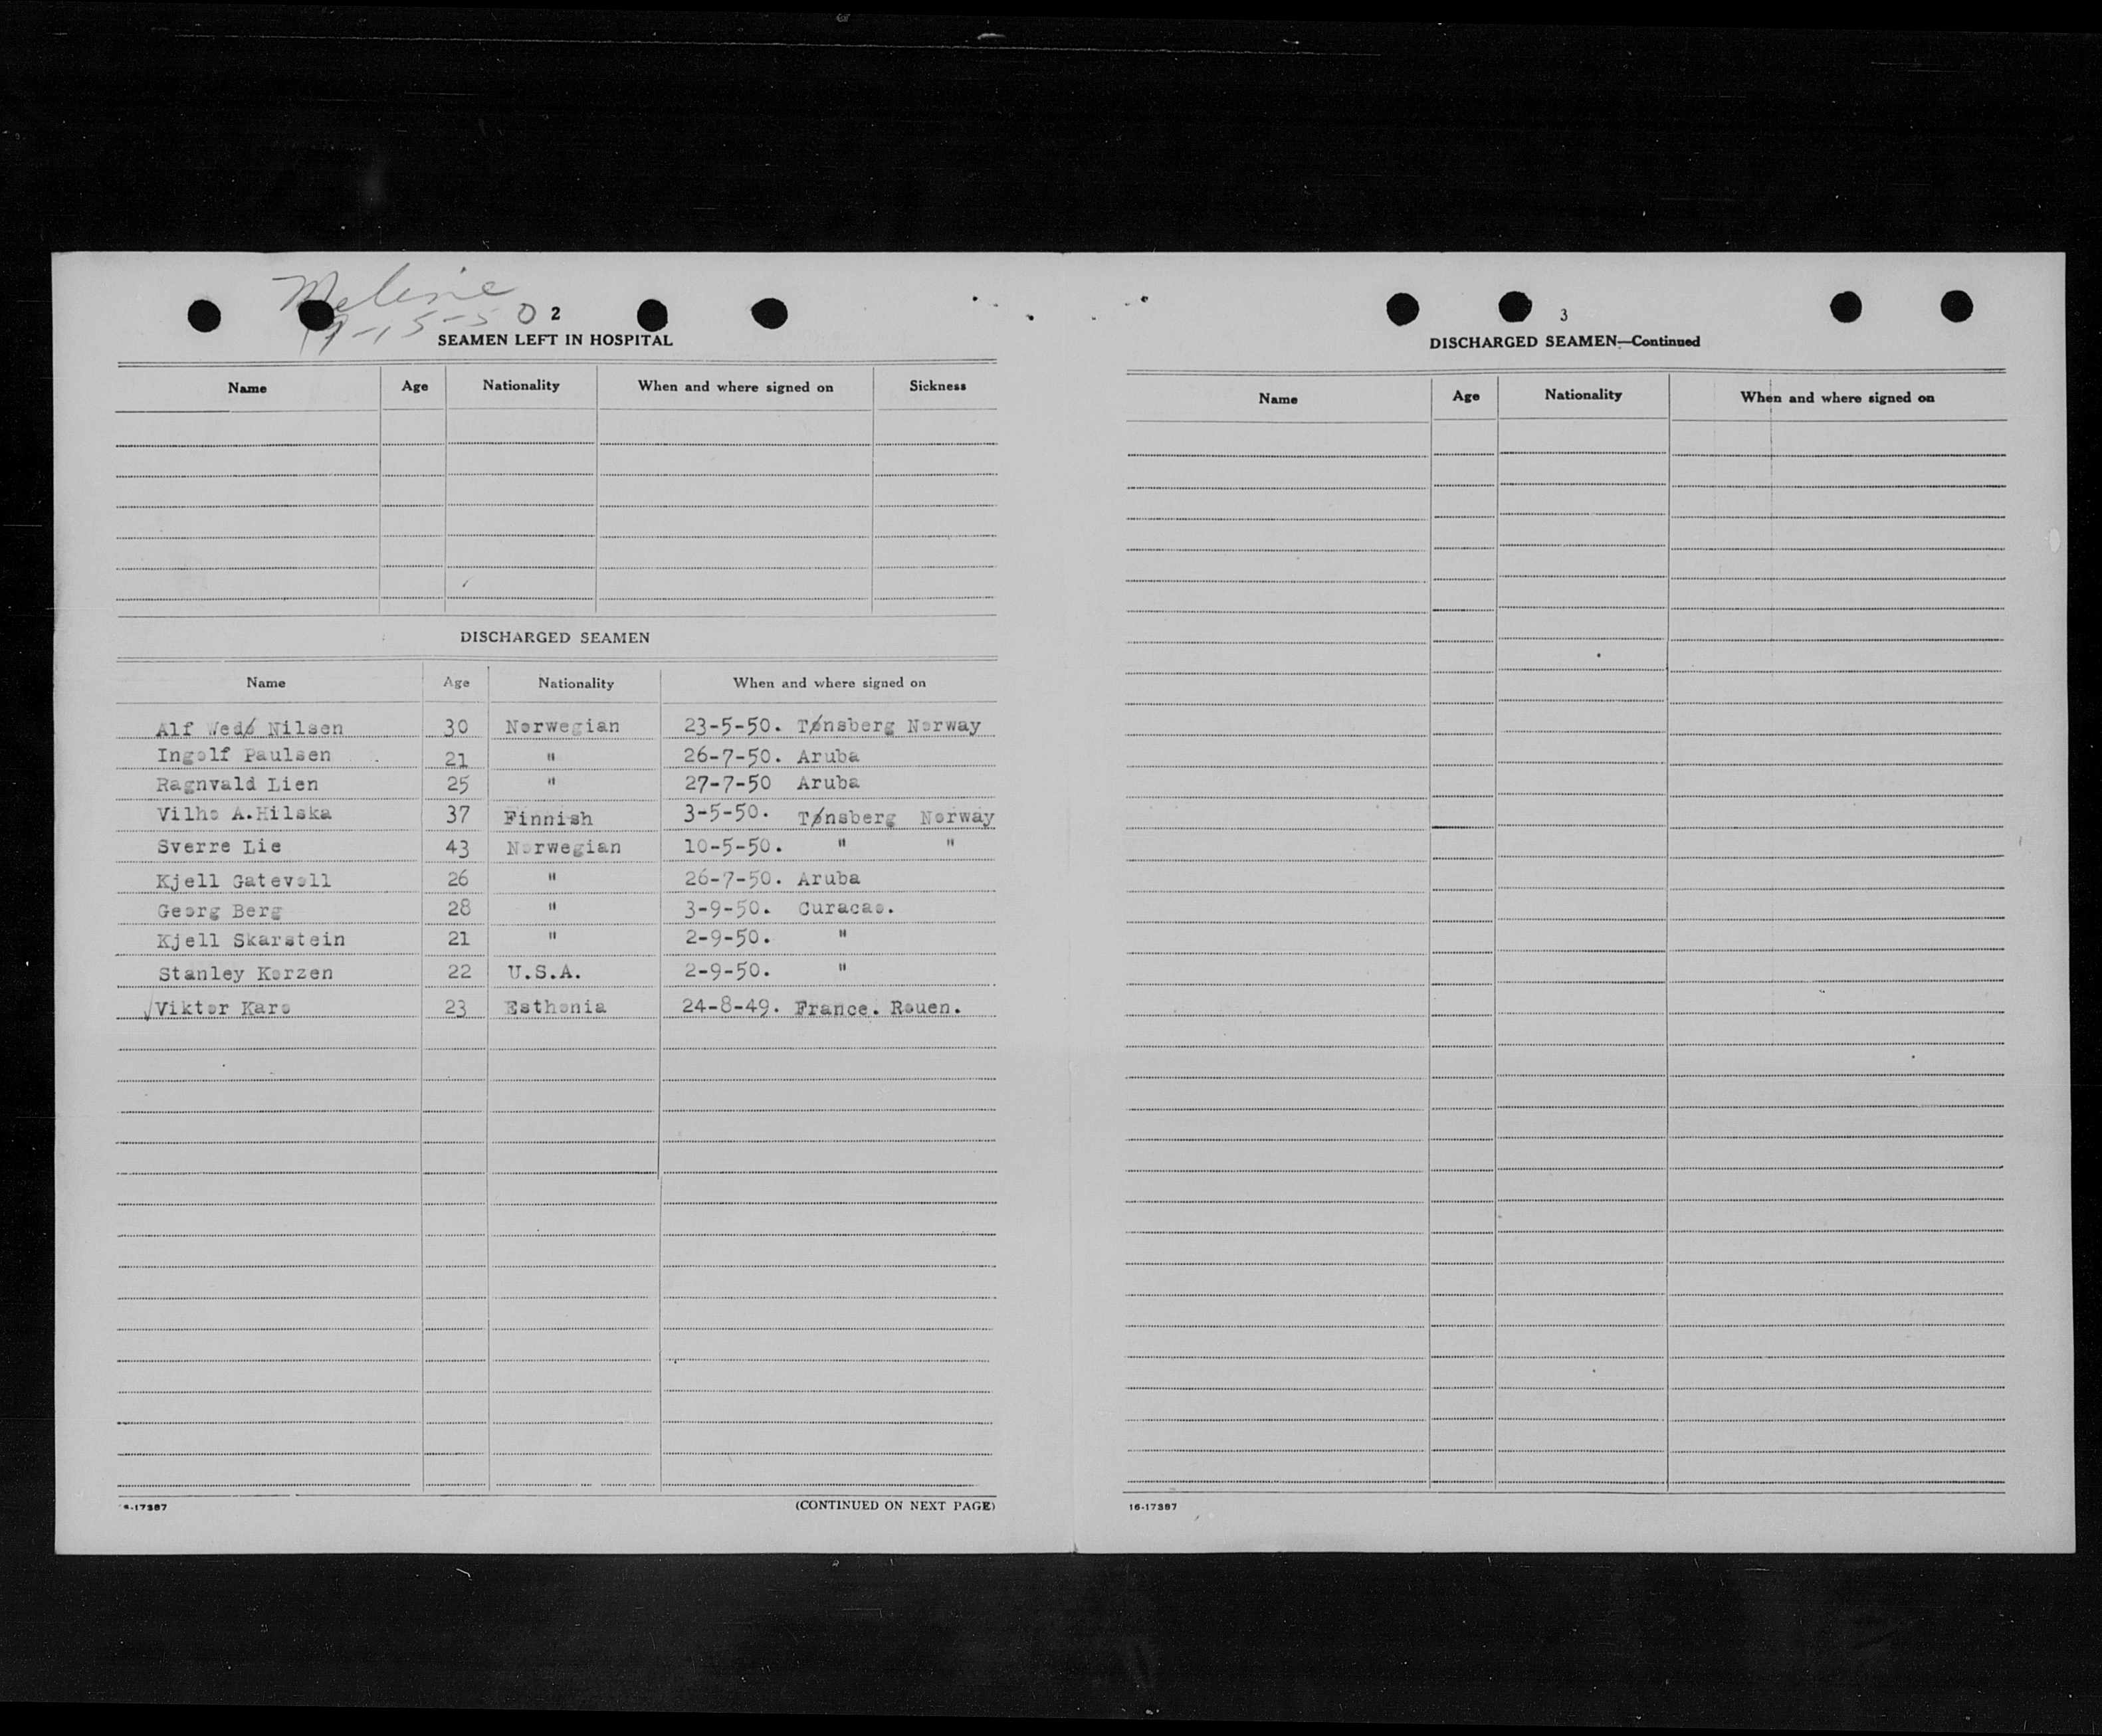 Meline
9-15-50
2
SEAMEN LEFT IN HOSPITAL
Name Age Nationality When and where signed on Sickness
DISCHARGED SEAMEN
Name Age Nationality When and where signed on
Alf Wedø Nilsen 30 Norwegian 23-5-50. Tønsberg Norway
Ingolf Paulsen 21 " 26-7-50. Aruba
Ragnvald Lien 25 " 27-7-50 Aruba
Vilho A.Hilska 37 Finnish 3-5-50. Tønsberg Norway
Sverre Lie 43 Norwegian 10-5-50. " "
Kjell Gatevoll 26 " 26-7-50. Aruba
Georg Berg 28 " 3-9-50. Curacao.
Kjell Skarstein 21 " 2-9-50. "
Stanley Korzen 22 U.S.A. 2-9-50. "
√Viktor Karo 23 Esthonia 24-8-49. France. Rouen.
6-17387 (CONTINUED ON NEXT PAGE)
3
DISCHARGED SEAMEN—Continued
Name Age Nationality When and where signed on
16-17387